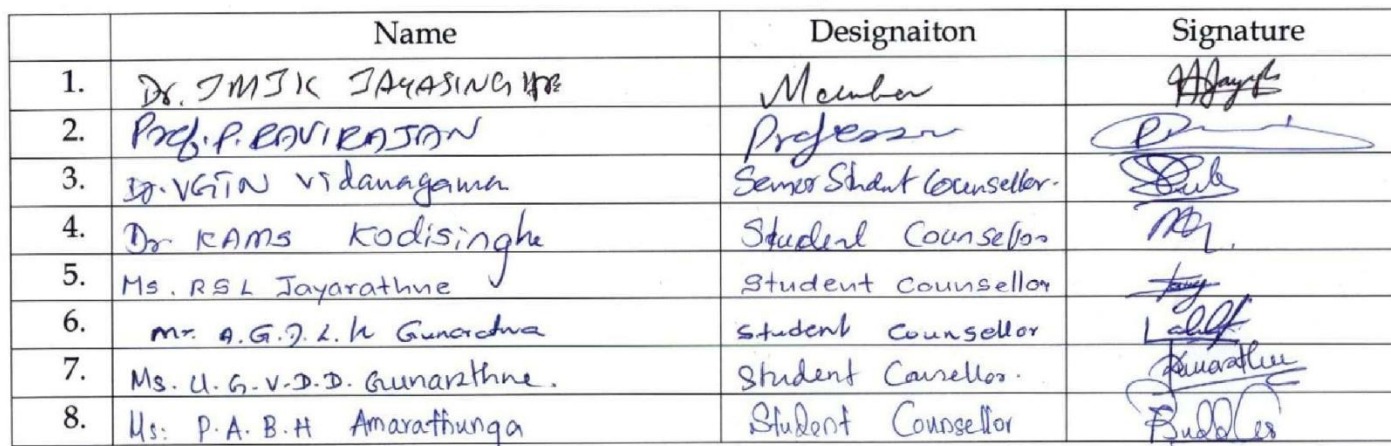 Name Designaiton Signature
1. Dr. JMJK JAYASINGHE Member
2. Prof. P. RAVIRAJAN Professor
3. Dr. VGTN Vidanagama Senior Student Counsellor.
4. Dr KAMS Kodisinghe Student Counsellor
5. Ms. RSL Jayarathne Student Counsellor
6. Mr. A.G.J.L.K Gunaratna Student Counsellor
7. Ms. U.G.V.D.D. Gunarathne. Student Counsellor.
8. Ms. P.A.B.H Amarathunga Student Counsellor